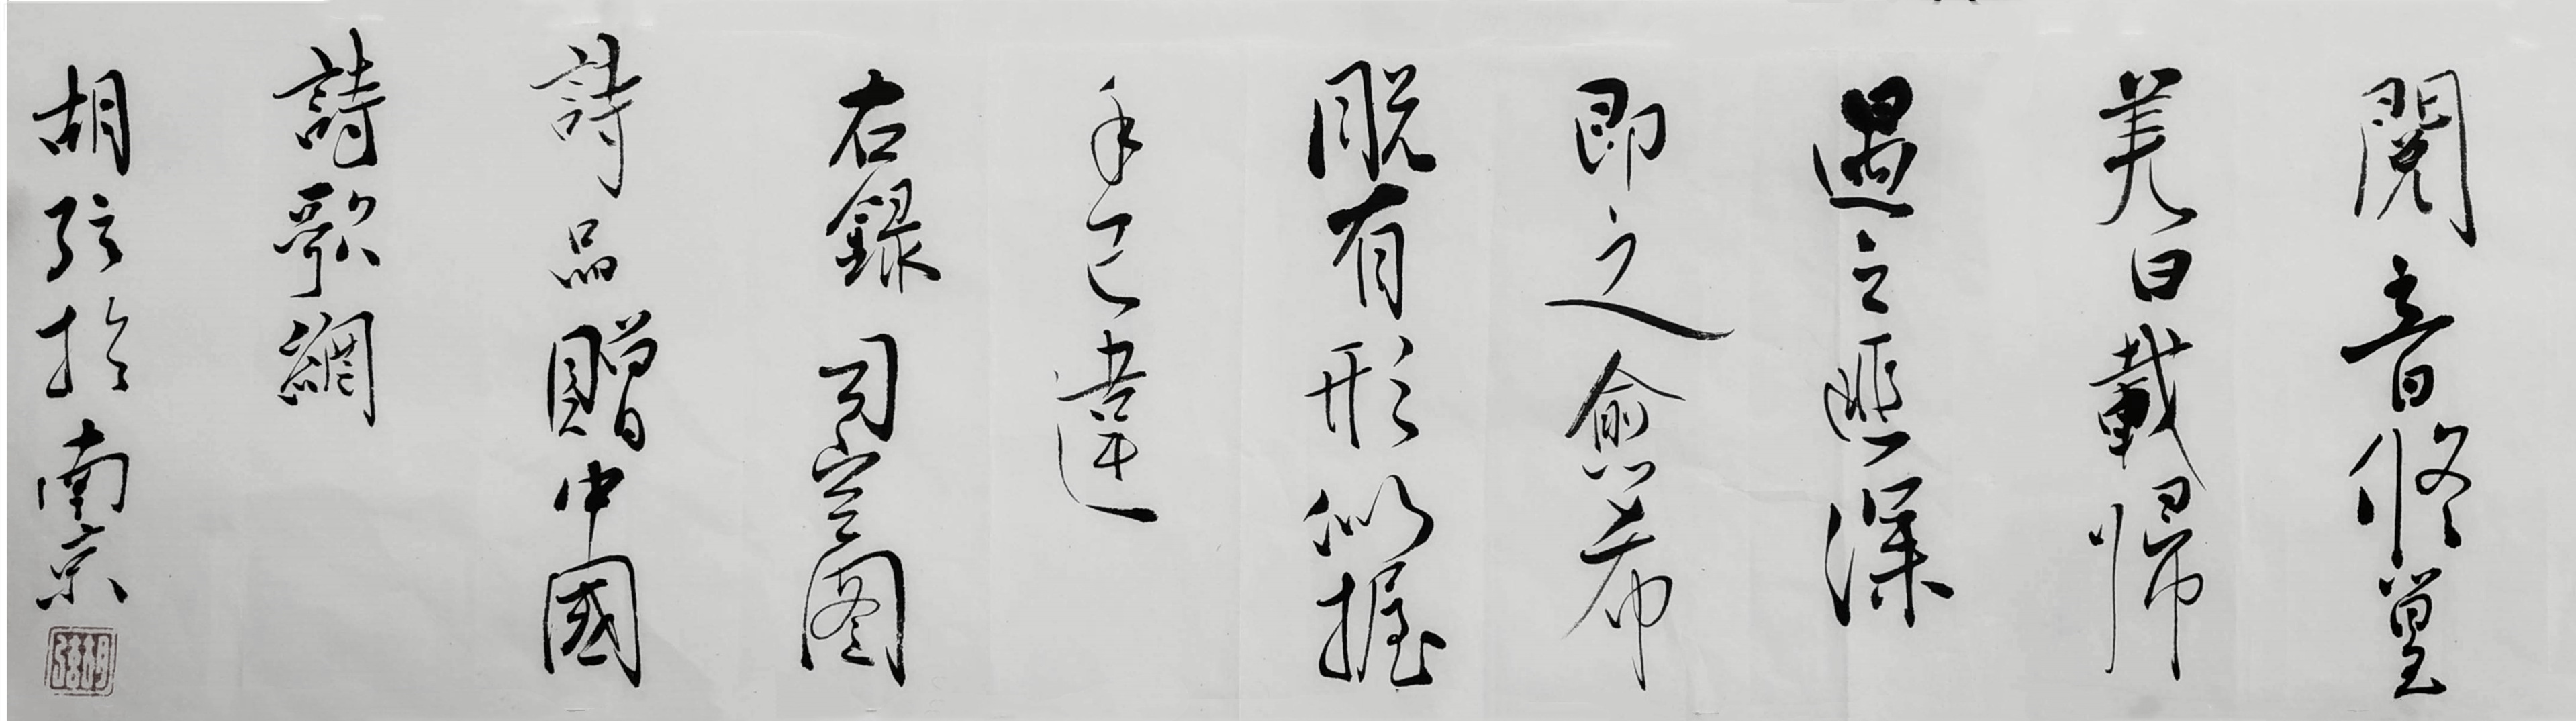 閱音修篁
美曰載歸
遇之匪深
即之愈希
脫有形似握
手已違
右錄司空图
詩品贈中國
詩歌網
胡弦於南京
胡弦